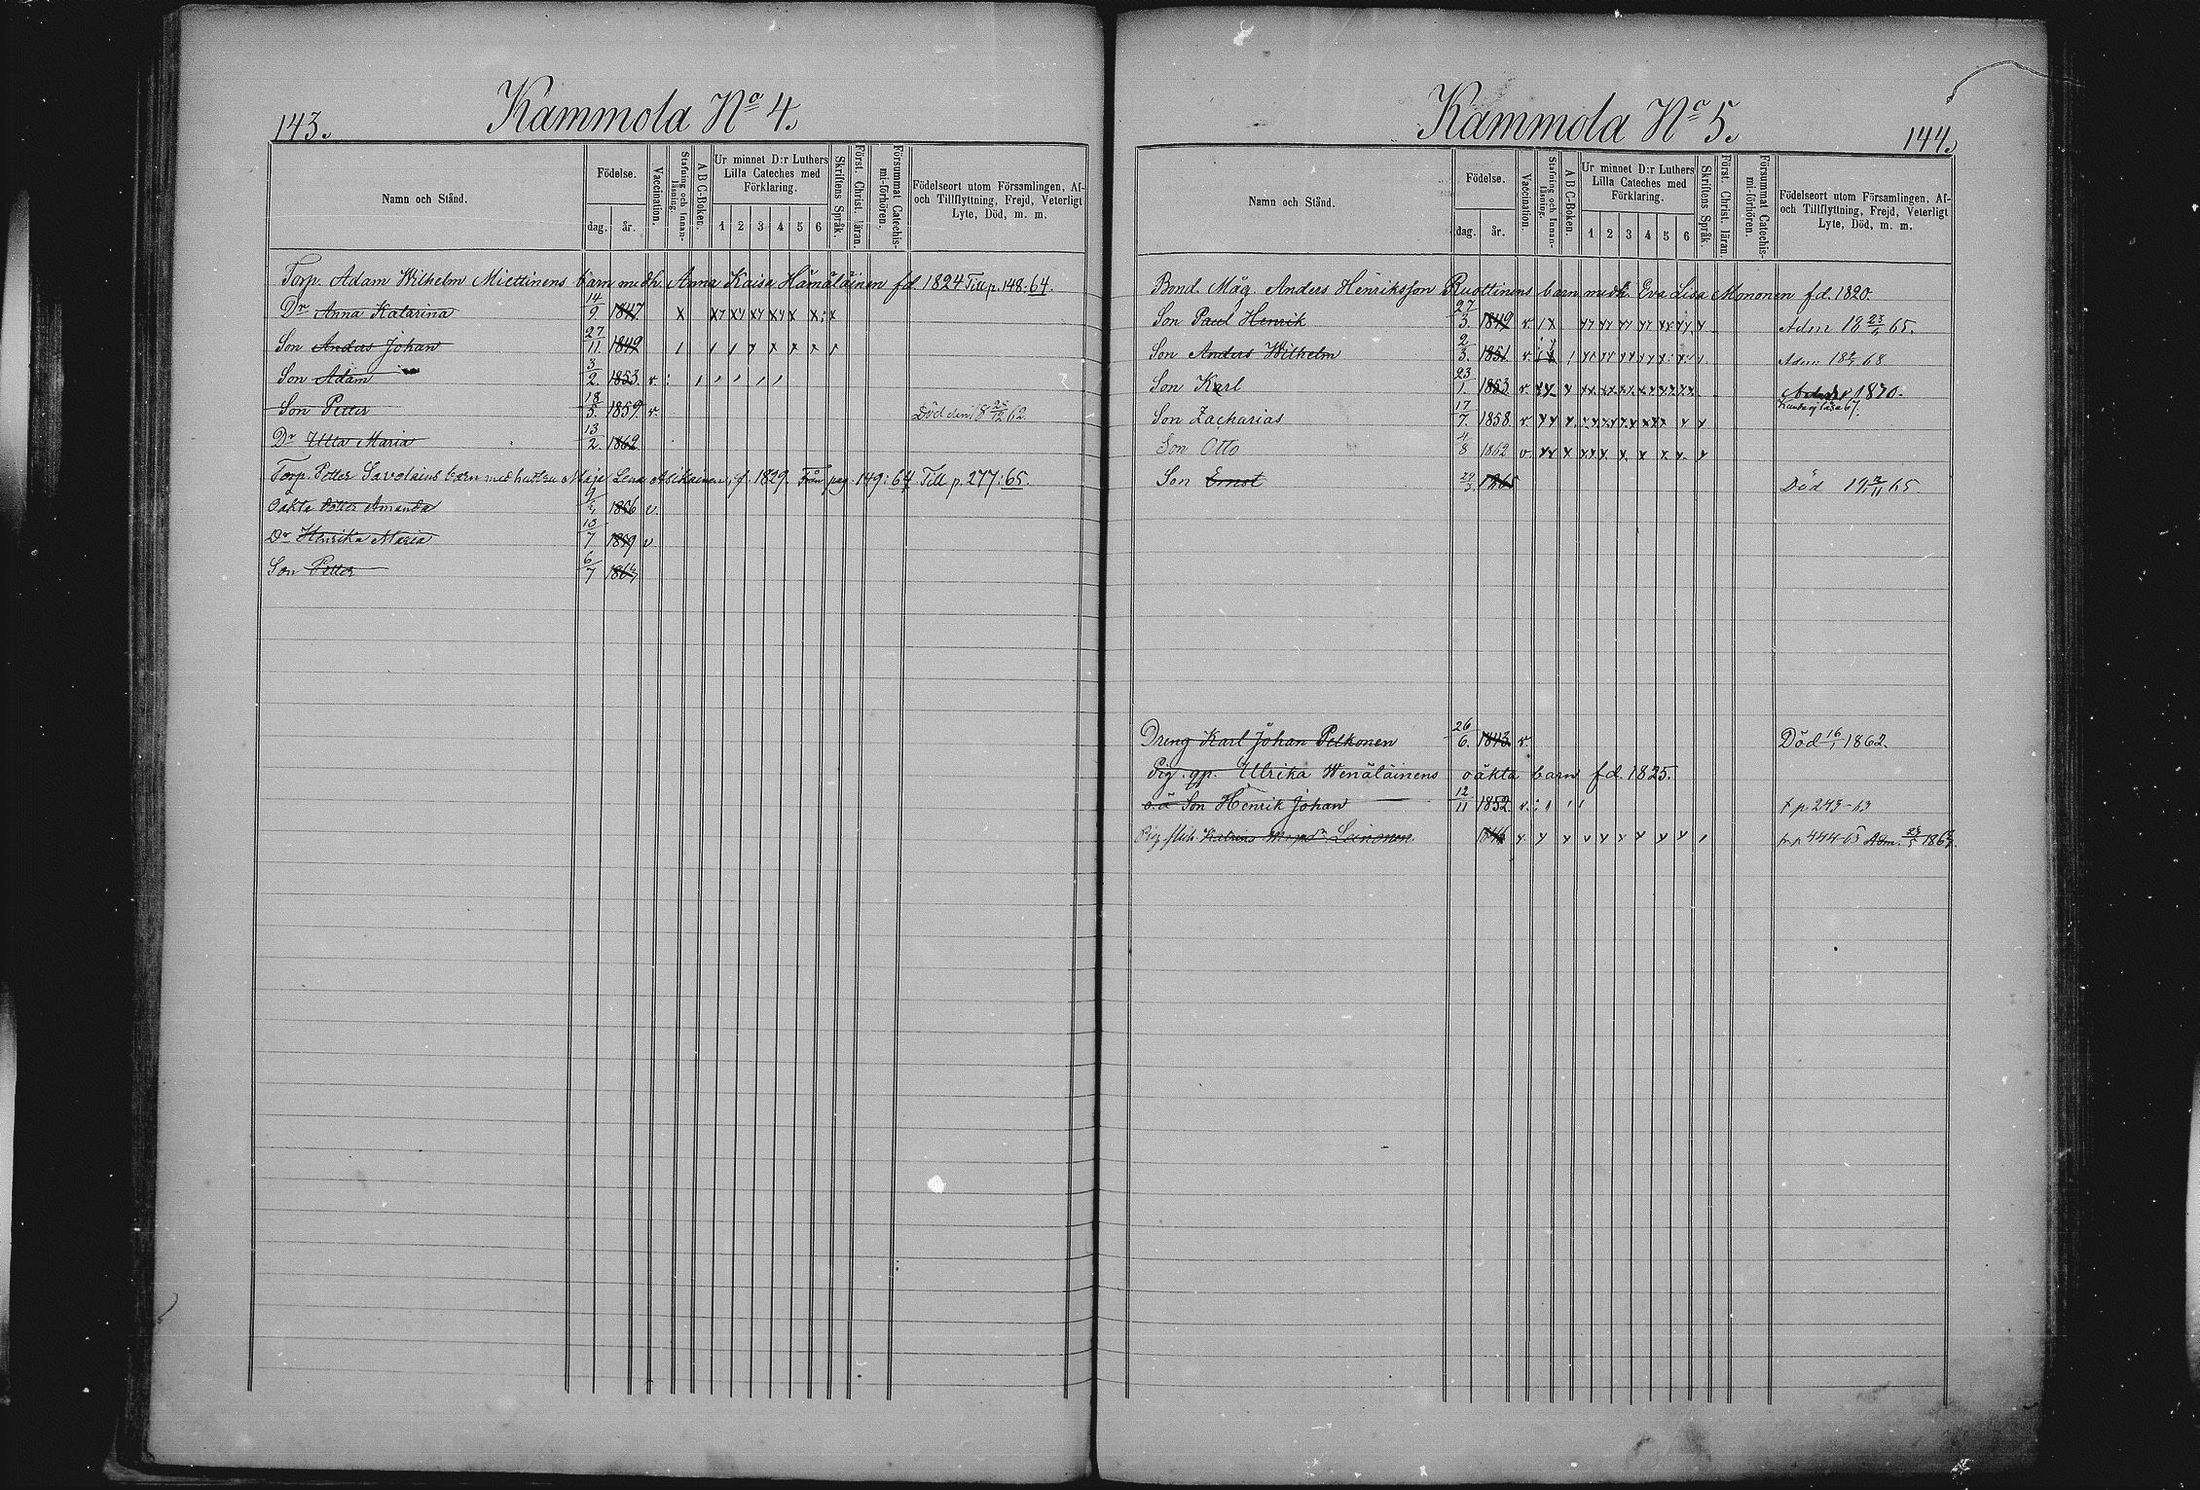 143.
Kammola No 4.
Namn och Stånd.
Födelse.
dag.
år.
Vaccination.
Stafning och Innan-läsning.
A B C-Boken.
Ur minnet D:r Luthers
Lilla Cateches med
Förklaring.
1 2 3 4 5 6
Skriftens Språk.
Först. Christ. läran.
Försummat Catechis-mi-förhören.
Födelseort utom Församlingen, Af-
och Tillflyttning, Frejd, Veterligt
Lyte, Död, m. m.
Torp. Adam Wilhelm Miettinens barn med h. Anna Kaisa Hämäläinen fd. 1824 Till p. 148. 64.
Dr Anna Katarina 14/9 1847 x x x x x x x x
Son Anders Johan 27/11. 1849
Son Adam 3/2. 1853. v.
Son Petter 18/5. 1859 v. Död den 18 25/12 62.
Dr Ulla Maria 13/2. 1862
Torp. Petter Savolains barn med hustru Maja Lena Asikainen, f. 1829. Från pag. 149: 64 Till p. 277: 65.
Oäkta Amanda 1856 v.
Dr Henrika Maria 13/7 1859 v
Son Petter 6/7
Kammola No 5.
144.
Namn och Stånd.
Födelse.
dag.
år.
Vaccination.
Stafning och Innan-läsning.
A B C-Boken.
Ur minnet D:r Luthers
Lilla Cateches med
Förklaring.
1 2 3 4 5 6
Skriftens Språk.
Först. Christ. läran.
Försummat Catechis-mi-förhören.
Födelseort utom Församlingen, Af-
och Tillflyttning, Frejd, Veterligt
Lyte, Död, m. m.
Bond. Måg. Anders Henriksson Ruottinens barn med h. Eva Lisa Mononen f.d. 1820.
Son Paul Henrik 27/3. 1849 v. Adm 18 65.
Son Anders Wilhelm 2/3. 1851 v. Adm 18 68
Son Karl 23/1. 1853 v. 1870.
Son Zacharias 17/7. 1858. v.
Son Otto 4/8 1862 v.
Son Ernst 29/3. 1865 Död 65.
Dreng Karl Johan Pelkonen 26/6. 1843 v. Död 16/1 1862.
Pig. qp. Ulrika Wenäläinens oäkta barn f.d. 1825.
o.ä Son Henrik Johan 12/11 1852. v. t. p. 243-63
Leinonen 444-65 Adm.